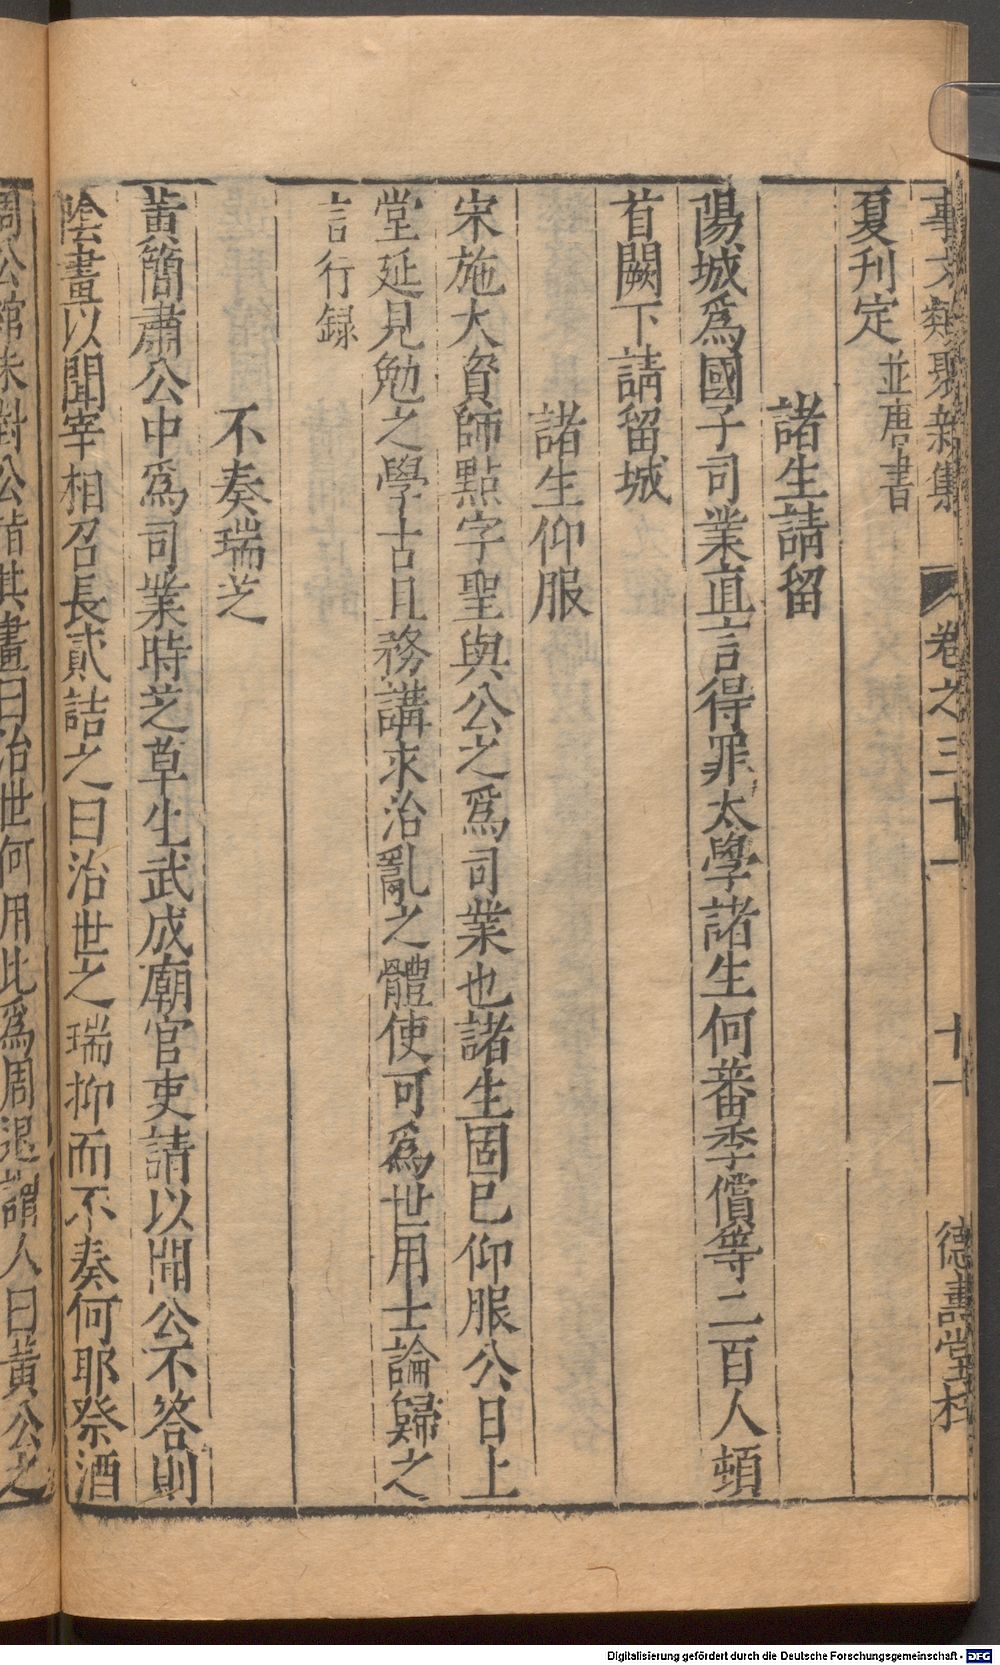 事文類聚新集 卷之三十一 十一 德壽堂梓
夏刊定並唐書
諸生請留
陽城爲國子司業直言得罪太學諸生何蕃季償等二百人頓
首闕下請留城
諸生仰服
宋施大資師點字聖與公之爲司業也諸生固已仰服公日上
堂延見勉之學古且務講求治亂之體使可爲世用士論歸之
言行録
不奏瑞芝
黃簡肅公中爲司業時芝草生武成廟官吏請以聞公不答則
陰畫以聞宰相召長貳詰之曰治世之瑞抑而不奏何耶祭酒
周公綰未對公指其畫曰治世何用此爲周退謂人曰黃公之
Digitalisierung gefördert durch die Deutsche Forschungsgemeinschaft - DFG